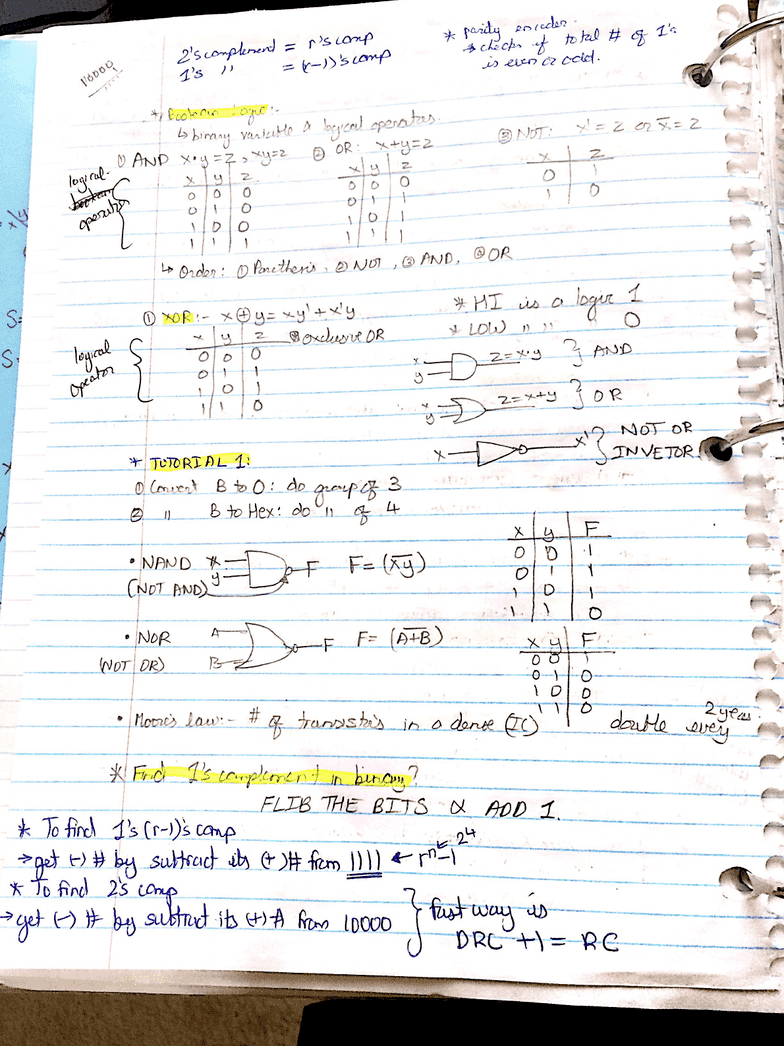 10000
2's complement = r's comp
1's " = (r-1)'s comp
* parity encoder.
→ checks if total # of 1's
is even or odd.
* Boolean Logic:-
↳ binary variable & logical operators.
① AND x•y=z, xy=z
x y z
0 0 0
0 1 0
1 0 0
1 1 1
② OR: x+y=z
x y z
0 0 0
0 1 1
1 0 1
1 1 1
③ NOT: x'=z or x̅=z
x z
0 1
1 0
logical
operator
↳ Order: ① Parethesis, ② NOT, ③ AND, ④ OR
① XOR:- x⊕y= xy'+x'y
x y z exclusive OR
0 0 0
0 1 1
1 0 1
1 1 0
logical
opeator
* HI is a logic 1
* LOW " " " 0
x y z=x•y } AND
x y z=x+y } OR
x x' } NOT OR
INVETOR
* TUTORIAL 1:
① Convert B to O: do group of 3
② " B to Hex: do " of 4
• NAND x y F F= (x̅y̅)
(NOT AND)
x y F
0 0 1
0 1 1
1 0 1
1 1 0
• NOR A B F F= (A̅+̅B̅)
(NOT OR)
x y F
0 0 1
0 1 0
1 0 0
1 1 0
• Moore's law:- # of transistors in a dense (IC) double every 2 years.
* Find 1's complement in binary?
FLIB THE BITS & ADD 1.
* To find 1's (r-1)'s comp
→ get (-) # by subtract its (+)# from 1111 ← rⁿ-1 24
* To find 2's comp
→ get (-) # by subtract its (+) # from 10000 } fast way is
DRC +1 = RC
S=
S-